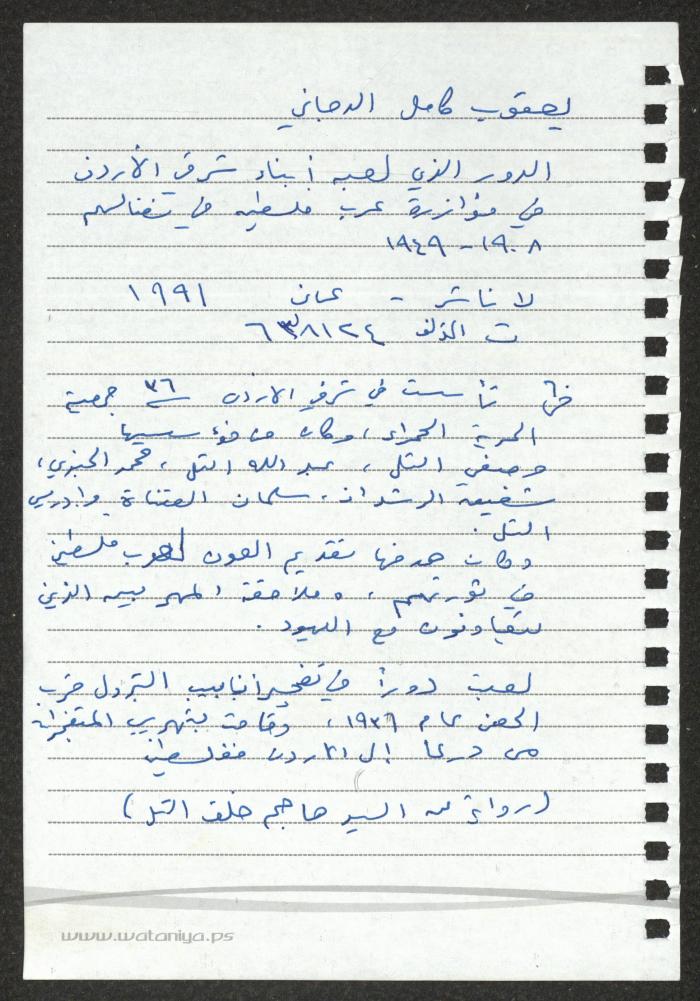 يعقوب كامل الدجاني
الدور الذي لعبه أبناء شرقي الأردن
في مؤازرة عرب فلسطين في نضالهم
١٩٠٨ - ١٩٤٩
لا ناشر - عمان ١٩٩١
ت المؤلف ٦٣٨١٢٤
تأسست في شرقي الاردن سنة ٣٦ جمعية
الحرية الحمراء، وكان من مؤسسيها
وصفي التل، عبد الله التل، محمد الجنزي،
شفيق الرشدات، سلمان القضاة وادريس
التل.
وكان هدفها تقديم العون لعرب فلسطين
في ثورتهم، وملاحقة المهربين الذين
يتعاونون مع اليهود.
لعبت دوراً في تفجير انابيب البترول قرب
الحصن عام ١٩٣٦، وقامت بتهريب المتفجرات
من درعا إلى الاردن ففلسطين
(رواية عن السيد هاجم خلف التل)
www.wataniya.ps